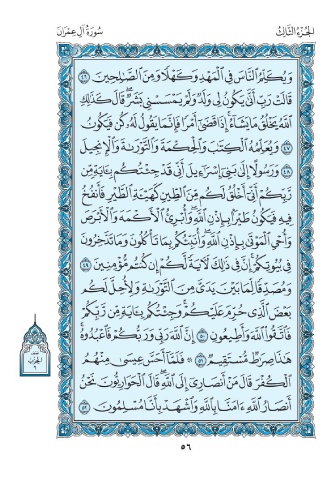 الجزء الثالث
سورة آل عمران
وَيُكَلِّمُ ٱلنَّاسَ فِي ٱلْمَهْدِ وَكَهْلًا وَمِنَ ٱلصَّٰلِحِينَ ٤٦
قَالَتْ رَبِّ أَنَّىٰ يَكُونُ لِي وَلَدٌ وَلَمْ يَمْسَسْنِي بَشَرٌ ۖ قَالَ كَذَٰلِكِ
ٱللَّهُ يَخْلُقُ مَا يَشَآءُ ۚ إِذَا قَضَىٰٓ أَمْرًا فَإِنَّمَا يَقُولُ لَهُۥ كُن فَيَكُونُ
٤٧ وَيُعَلِّمُهُ ٱلْكِتَٰبَ وَٱلْحِكْمَةَ وَٱلتَّوْرَىٰةَ وَٱلْإِنجِيلَ
٤٨ وَرَسُولًا إِلَىٰ بَنِيٓ إِسْرَٰٓءِيلَ أَنِّي قَدْ جِئْتُكُم بِـَٔايَةٍ مِّن
رَّبِّكُمْ أَنِّيٓ أَخْلُقُ لَكُم مِّنَ ٱلطِّينِ كَهَيْـَٔةِ ٱلطَّيْرِ فَأَنفُخُ
فِيهِ فَيَكُونُ طَيْرًۢا بِإِذْنِ ٱللَّهِ ۖ وَأُبْرِئُ ٱلْأَكْمَهَ وَٱلْأَبْرَصَ
وَأُحْيِ ٱلْمَوْتَىٰ بِإِذْنِ ٱللَّهِ ۖ وَأُنَبِّئُكُم بِمَا تَأْكُلُونَ وَمَا تَدَّخِرُونَ
فِي بُيُوتِكُمْ ۚ إِنَّ فِي ذَٰلِكَ لَـَٔايَةً لَّكُمْ إِن كُنتُم مُّؤْمِنِينَ ٤٩
وَمُصَدِّقًا لِّمَا بَيْنَ يَدَيَّ مِنَ ٱلتَّوْرَىٰةِ وَلِأُحِلَّ لَكُم
بَعْضَ ٱلَّذِي حُرِّمَ عَلَيْكُمْ ۚ وَجِئْتُكُم بِـَٔايَةٍ مِّن رَّبِّكُمْ
فَٱتَّقُوا۟ ٱللَّهَ وَأَطِيعُونِ ٥٠ إِنَّ ٱللَّهَ رَبِّي وَرَبُّكُمْ فَٱعْبُدُوهُ ۗ
هَٰذَا صِرَٰطٌ مُّسْتَقِيمٌ ٥١ ۞ فَلَمَّآ أَحَسَّ عِيسَىٰ مِنْهُمُ
ٱلْكُفْرَ قَالَ مَنْ أَنصَارِيٓ إِلَى ٱللَّهِ ۖ قَالَ ٱلْحَوَارِيُّونَ نَحْنُ
أَنصَارُ ٱللَّهِ ءَامَنَّا بِٱللَّهِ وَٱشْهَدْ بِأَنَّا مُسْلِمُونَ ٥٢
٥٦